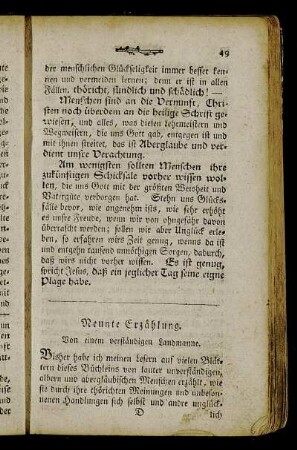 49
der menschlichen Glückseligkeit immer besser ken-
nen und vermeiden lernen; denn er ist in allen
Fällen, thöricht, sündlich und schädlich! —
Menschen sind an die Vernunft, Chri-
sten noch überdem an die heilige Schrift ge-
wiesen, und alles, was diesen Lehrmeistern und
Wegweisern, die uns Gott gab, entgegen ist und
mit ihnen streitet, das ist Aberglaube und ver-
dient unsre Verachtung.
Am wenigsten sollten Menschen ihre
zukünftigen Schicksale vorher wissen wol-
len, die uns Gott mit der größten Weisheit und
Vatergüte verborgen hat. Stehn uns Glücks-
fälle bevor, wie angenehm ists, wie sehr erhöht
es unsre Freude, wenn wir von ohngefähr davon
überrascht werden; sollen wir aber Unglück erle-
ben, so erfahren wirs Zeit genug, wenns da ist
und entgehn tausend unnöthigen Sorgen, dadurch,
daß wirs nicht vorher wissen. Es ist genug,
spricht Jesus, daß ein jeglicher Tag seine eigne
Plage habe.
Neunte Erzählung.
Von einem verständigen Landmanne.
Bisher habe ich meinen Lesern auf vielen Blät-
tern dieses Büchleins von lauter unverständigen,
albern und abergläubischen Menschen erzählt, wie
sie durch ihre thörichten Meinungen und unbeson-
nenen Handlungen sich selbst und andre unglück-
D lich)